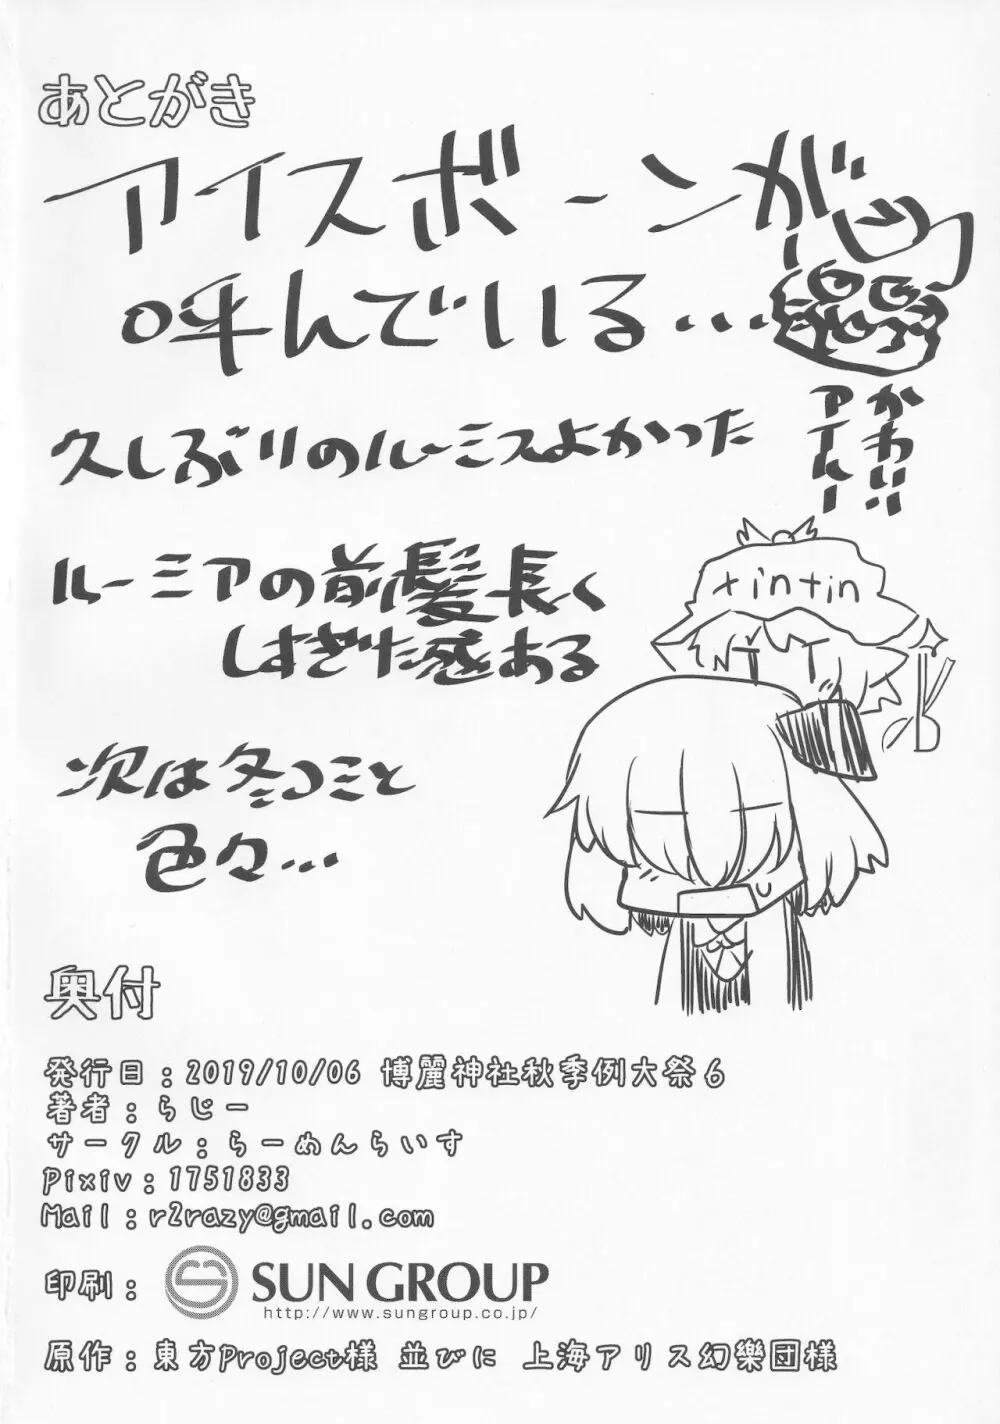 あとがき
アイスボーンが
呼んでいる…
かわいい
アイルー
久しぶりのルーミスよかった
ルーミアの前髪長く
しすぎた感ある
tintin
次は冬コミと
色々…
奥付
発行日：2019/10/06 博麗神社秋季例大祭6
著者：らじー
サークル：らーめんらいす
Pixiv：1751833
Mail：r2razy@gmail.com
印刷： SUN GROUP
http://www.sungroup.co.jp/
原作：東方Project様 並びに 上海アリス幻樂団様